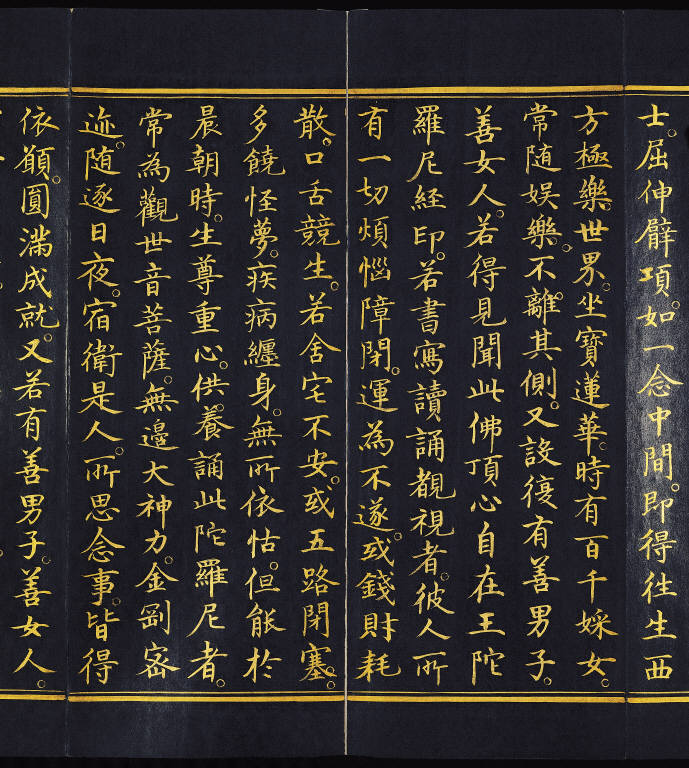 士。屈伸臂項。如一念中間。即得往生西
方極樂。世界。坐寶蓮華。時有百千婇女。
常随娯樂。不離其側。又設復有善男子。
善女人。若得見聞此佛頂心自在王陀
羅尼經印。若書寫讀誦覩視者。彼人所
有一切煩惱障閉。運為不遂。或錢財耗
散。口舌競生。若舍宅不安。或五路閉塞。
多饒怪夢。疾病纏身。無所依怙。但能於
晨朝時。生尊重心。供養誦此陀羅尼者。
常為觀世音菩薩。無邊大神力。金剛宻
迹。随逐日夜。宿衛是人。所思念事。皆得
依願。圓滿成就。又若有善男子。善女人。